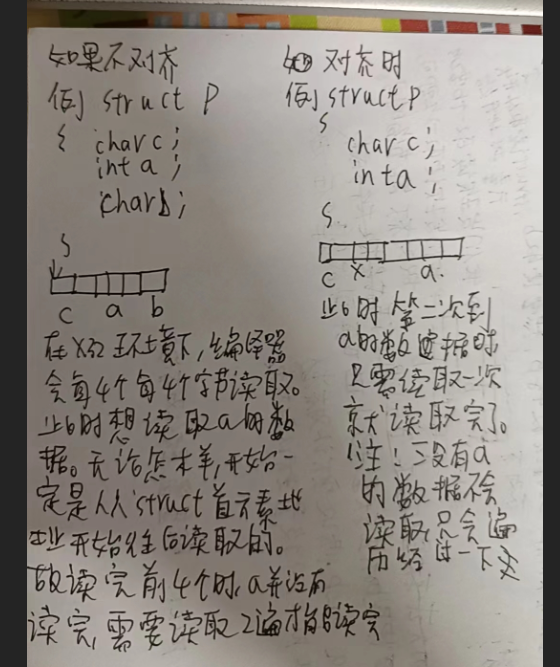 如果不对齐
例 struct P
{ char c;
int a;
char b;
}
c a b
在X32环境下,编译器
会每4个每4个字节读取。
此时想读取a的数
据。无论怎样,开始一
定是从struct首元素地
址开始往后读取的。
故读完前4个时,a并没有
读完,需要读取2遍才能读完
对齐时
例 struct P
{
char c;
int a;
}
c x a
此时第二次到
a的数据时
只需读取一次
就读取完了。
(注!没有a
的数据不会
读取,只会遍
历经过一下